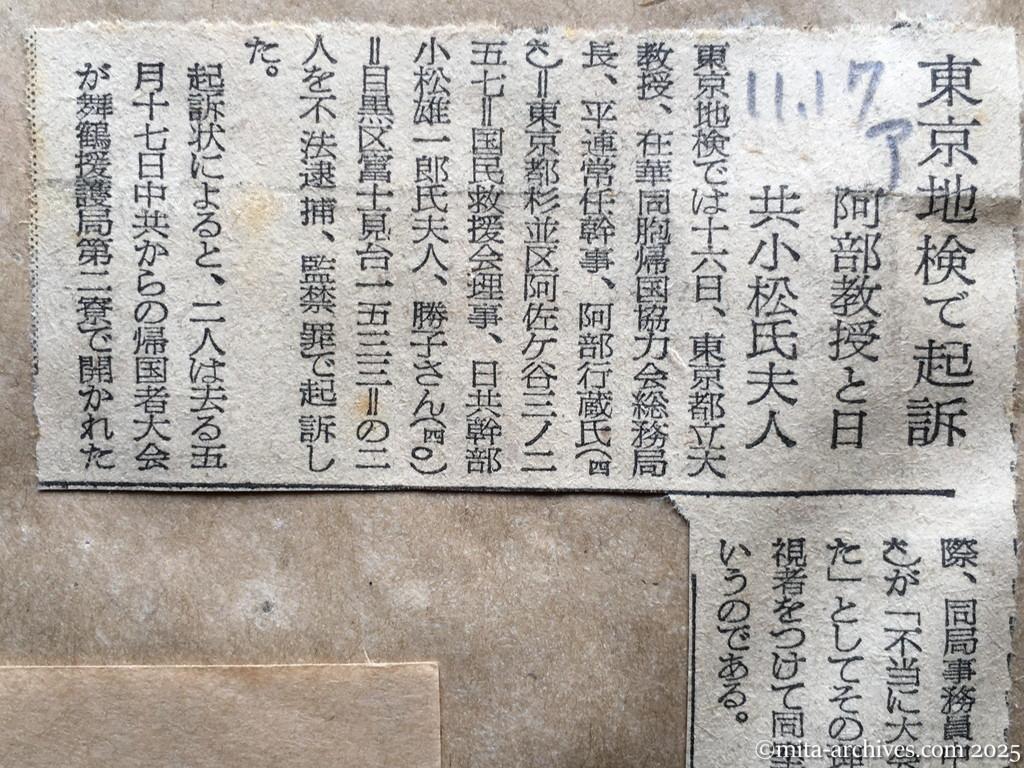 東京地検で起訴
阿部教授と日
共小松氏夫人
11.17
ア
東京地検では十六日、東京都立大
教授、在華同胞帰国協力会総務局
長、平連常任幹事、阿部行蔵氏(四
六)=東京都杉並区阿佐ケ谷三ノ二
五七=国民救援会理事、日共幹部
小松雄一郎氏夫人、勝子さん(四〇)
=目黒区富士見台一五三三=の二
人を不法逮捕、監禁罪で起訴し
た。
起訴状によると、二人は去る五
月十七日中共からの帰国者大会
が舞鶴援護局第二寮で開かれた
際、同局事務員
が「不当に大
た」としてその
視者をつけて同
いうのである。
©mita-archives.com 2025